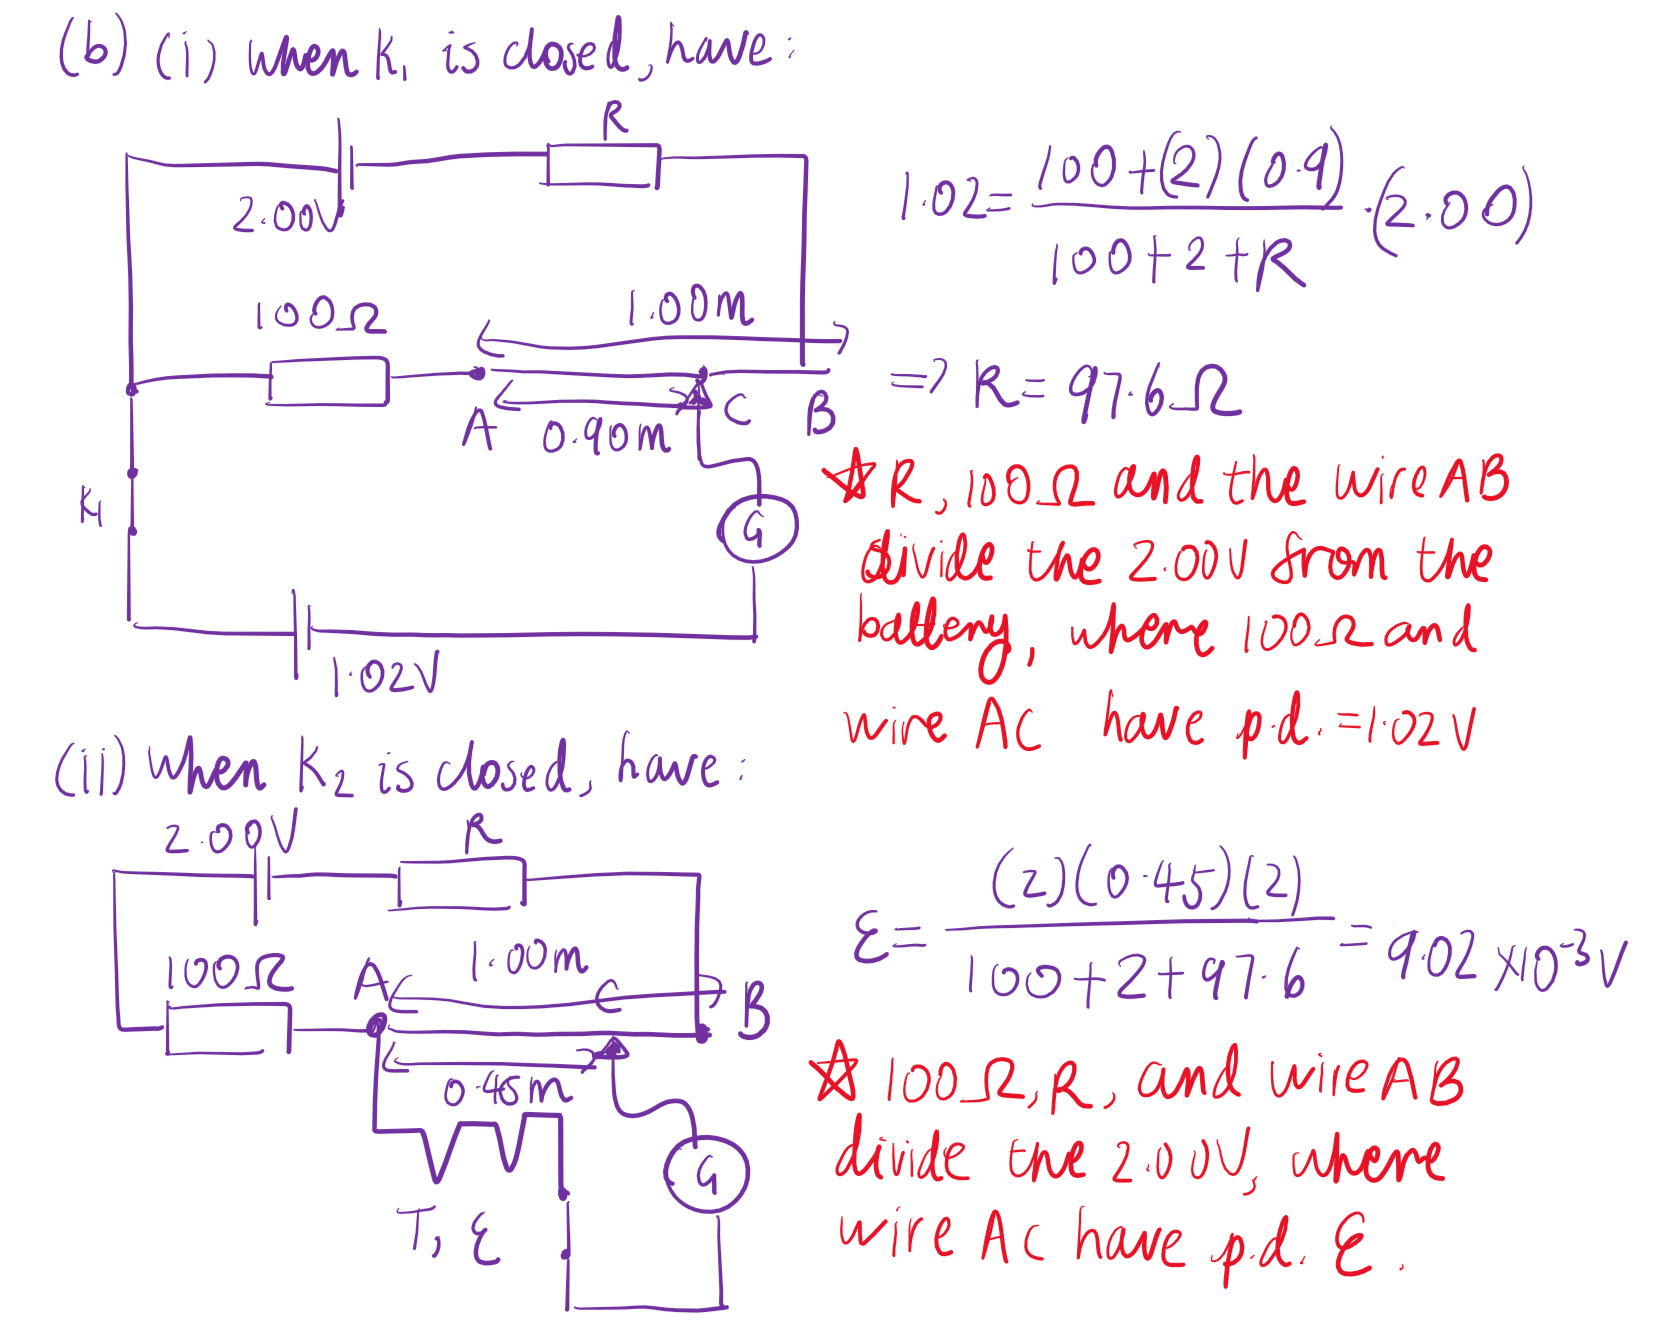 (b) (i) when K₁ is closed, have:
R
2.00V
100Ω
1.00m
A
0.90m
C
B
K₁
G
1.02V
1.02 = (100+(2)(0.9))/(100+2+R) ·(2.00)
=> R = 97.6Ω
☆ R, 100Ω and the wire AB
divide the 2.00V from the
battery, where 100Ω and
wire AC have p.d. = 1.02V
(ii) when K₂ is closed, have:
2.00V
R
100Ω
A
1.00m
C
B
0.45m
G
T, ε
ε = (2)(0.45)(2)/(100+2+97.6) = 9.02 x10⁻³ V
☆ 100Ω, R, and wire AB
divide the 2.00V, where
wire AC have p.d. ε.